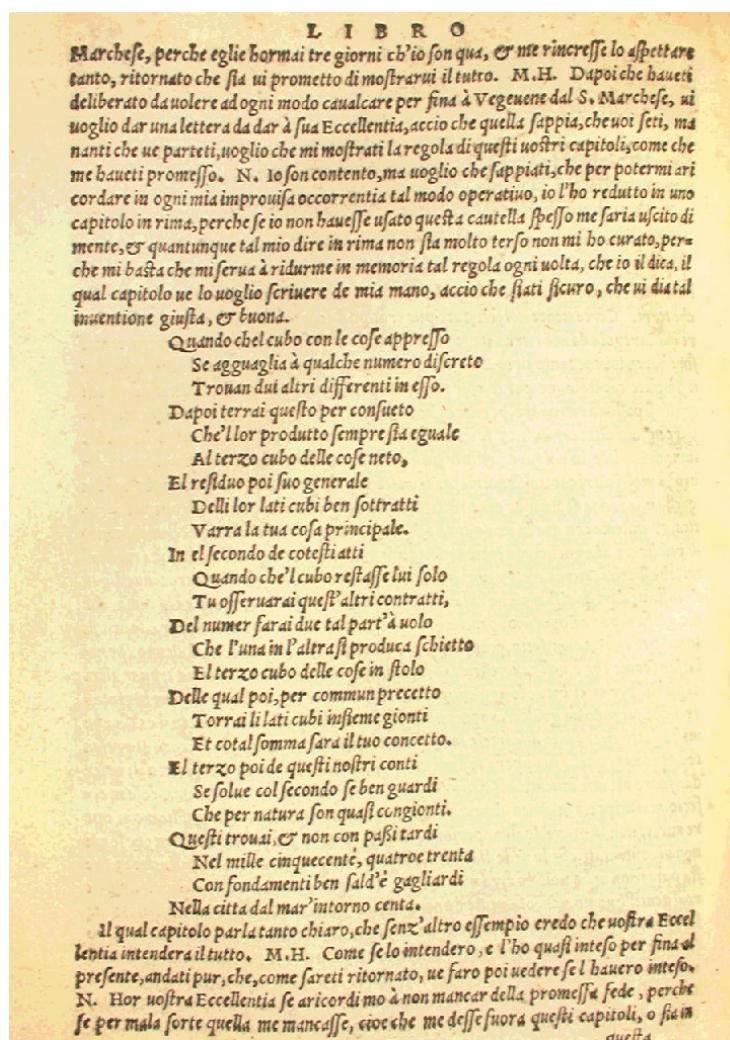 L I B R O
Marcheſe, perche eglie hormai tre giorni ch'io ſon qua, & me rincreſſe lo aſpettare
tanto, ritornato che ſia ui prometto di moſtrarui il tutto. M.H. Dapoi che haueti
deliberato da uolere ad ogni modo caualcare per fina à Vegeuene dal S. Marcheſe, ui
uoglio dar una lettera da dar à ſua Eccellentia, accio che quella ſappia, che uoi ſeti, ma
nanti che ue parteti, uoglio che mi moſtrati la regola di queſti uoſtri capitoli, come che
me haueti promeſſo. N. Io ſon contento, ma uoglio che ſappiati, che per potermi ari
cordare in ogni mia improuiſa occorrentia tal modo operatiuo, io l'ho redutto in uno
capitolo in rima, perche ſe io non haueſſe uſato queſta cautella ſpeſſo me ſaria uſcito di
mente, & quantunque tal mio dire in rima non ſia molto terſo non mi ho curato, per=
che mi baſta che mi ſerua à ridurme in memoria tal regola ogni uolta, che io il dica, il
qual capitolo ue lo uoglio ſcriuere de mia mano, accio che ſiati ſicuro, che ui dia tal
inuentione giuſta, & buona.
Quando chel cubo con le coſe appreſſo
Se agguaglia à qualche numero diſcreto
Trouan dui altri differenti in eſſo.
Dapoi terrai queſto per conſueto
Che'l lor produtto ſempre ſia eguale
Al terzo cubo delle coſe neto,
El reſiduo poi ſuo generale
Delli lor lati cubi ben ſottratti
Varra la tua coſa principale.
In el ſecondo de coteſti atti
Quando che'l cubo reſtaſſe lui ſolo
Tu oſſeruarai queſt'altri contratti,
Del numer farai due tal part'à uolo
Che l'una in l'altra ſi produca ſchietto
El terzo cubo delle coſe in ſtolo
Delle qual poi, per commun precetto
Torrai li lati cubi inſieme gionti
Et cotal ſomma ſara il tuo concetto.
El terzo poi de queſti noſtri conti
Se ſolue col ſecondo ſe ben guardi
Che per natura ſon quaſi congionti.
Queſti trouai, & non con paßi tardi
Nel mille cinquecentè, quatroe trenta
Con fondamenti ben ſald'è gagliardi
Nella citta dal mar'intorno centa.
Il qual capitolo parla tanto chiaro, che ſenz'altro eſſempio credo che uoſtra Eccel
lentia intendera il tutto. M.H. Come ſe lo intendero, e l'ho quaſi inteſo per fina al
preſente, andati pur, che, come ſareti ritornato, ue faro poi uedere ſe l hauero inteſo.
N. Hor uoſtra Eccellentia ſe aricordi mo à non mancar della promeſſa fede, perche
ſe per mala ſorte quella me mancaſſe, cioe che me deſſe fuora queſti capitoli, o ſia in
queſta